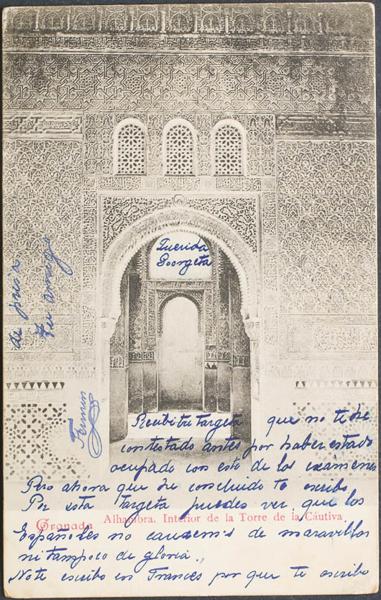 Querida
Georgeta
Recibi tu targeta que no te he
contestado antes por haber estado
ocupado con esto de los examenes
Pero ahora que he concluido te escribo
Por esta targeta puedes ver que los
Españoles no carecemos de maravillas
ni tampoco de gloria.
No te escribo en Frances por que te escribo
de prisa
tu amigo
Fermin
Granada Alhambra. Interior de la Torre de la Cautiva